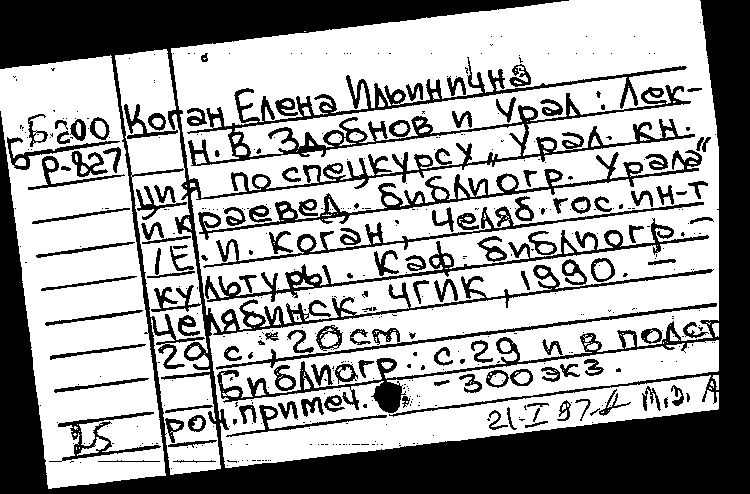 Коган, Елена Ильинична
Б Б200
Р-827
Н. В. Здобнов и Урал : Лек-
ция по спецкурсу „Урал. кн.
и краевед. библиогр. Урала"
/Е. И. Коган; Челяб. гос. ин-т
культуры. Каф. библиогр. –
Челябинск: ЧГИК, 1990. –
29 с.; 20 см.
Библиогр.: с. 29 и в подст
роч. примеч. – 300 экз.
25
21-I 97